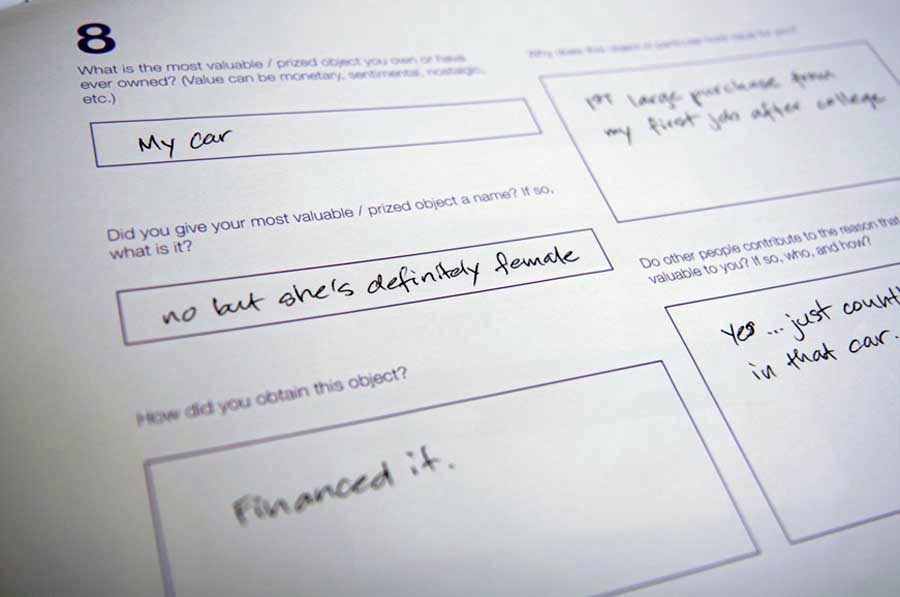 8
What is the most valuable / prized object you own or have
ever owned? (Value can be monetary, sentimental, nostalgic,
etc.)
My car
Did you give your most valuable / prized object a name? If so,
what is it?
no but she's definitely female
How did you obtain this object?
Financed it.
Why does this object in particular hold value for you?
1st large purchase from
my first job after college
Do other people contribute to the reason that
valuable to you? If so, who, and how?
Yes ... just
in that car.